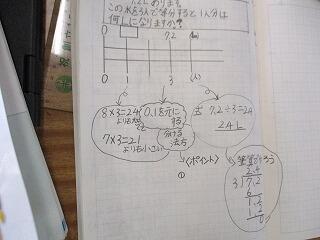 この水を3人で等分すると1人分は
何Lになりますか?
0 7.2 (L)
0 1 3 (人)
8×3=24
よりも大
7×3=21
よりも小さい
0.1が元に
する
分ける
法方
式 7.2÷3=2.4
2.4L
〈ポイント〉
①
筆算
2.4
3)7.2
6
1.2
1.2
0